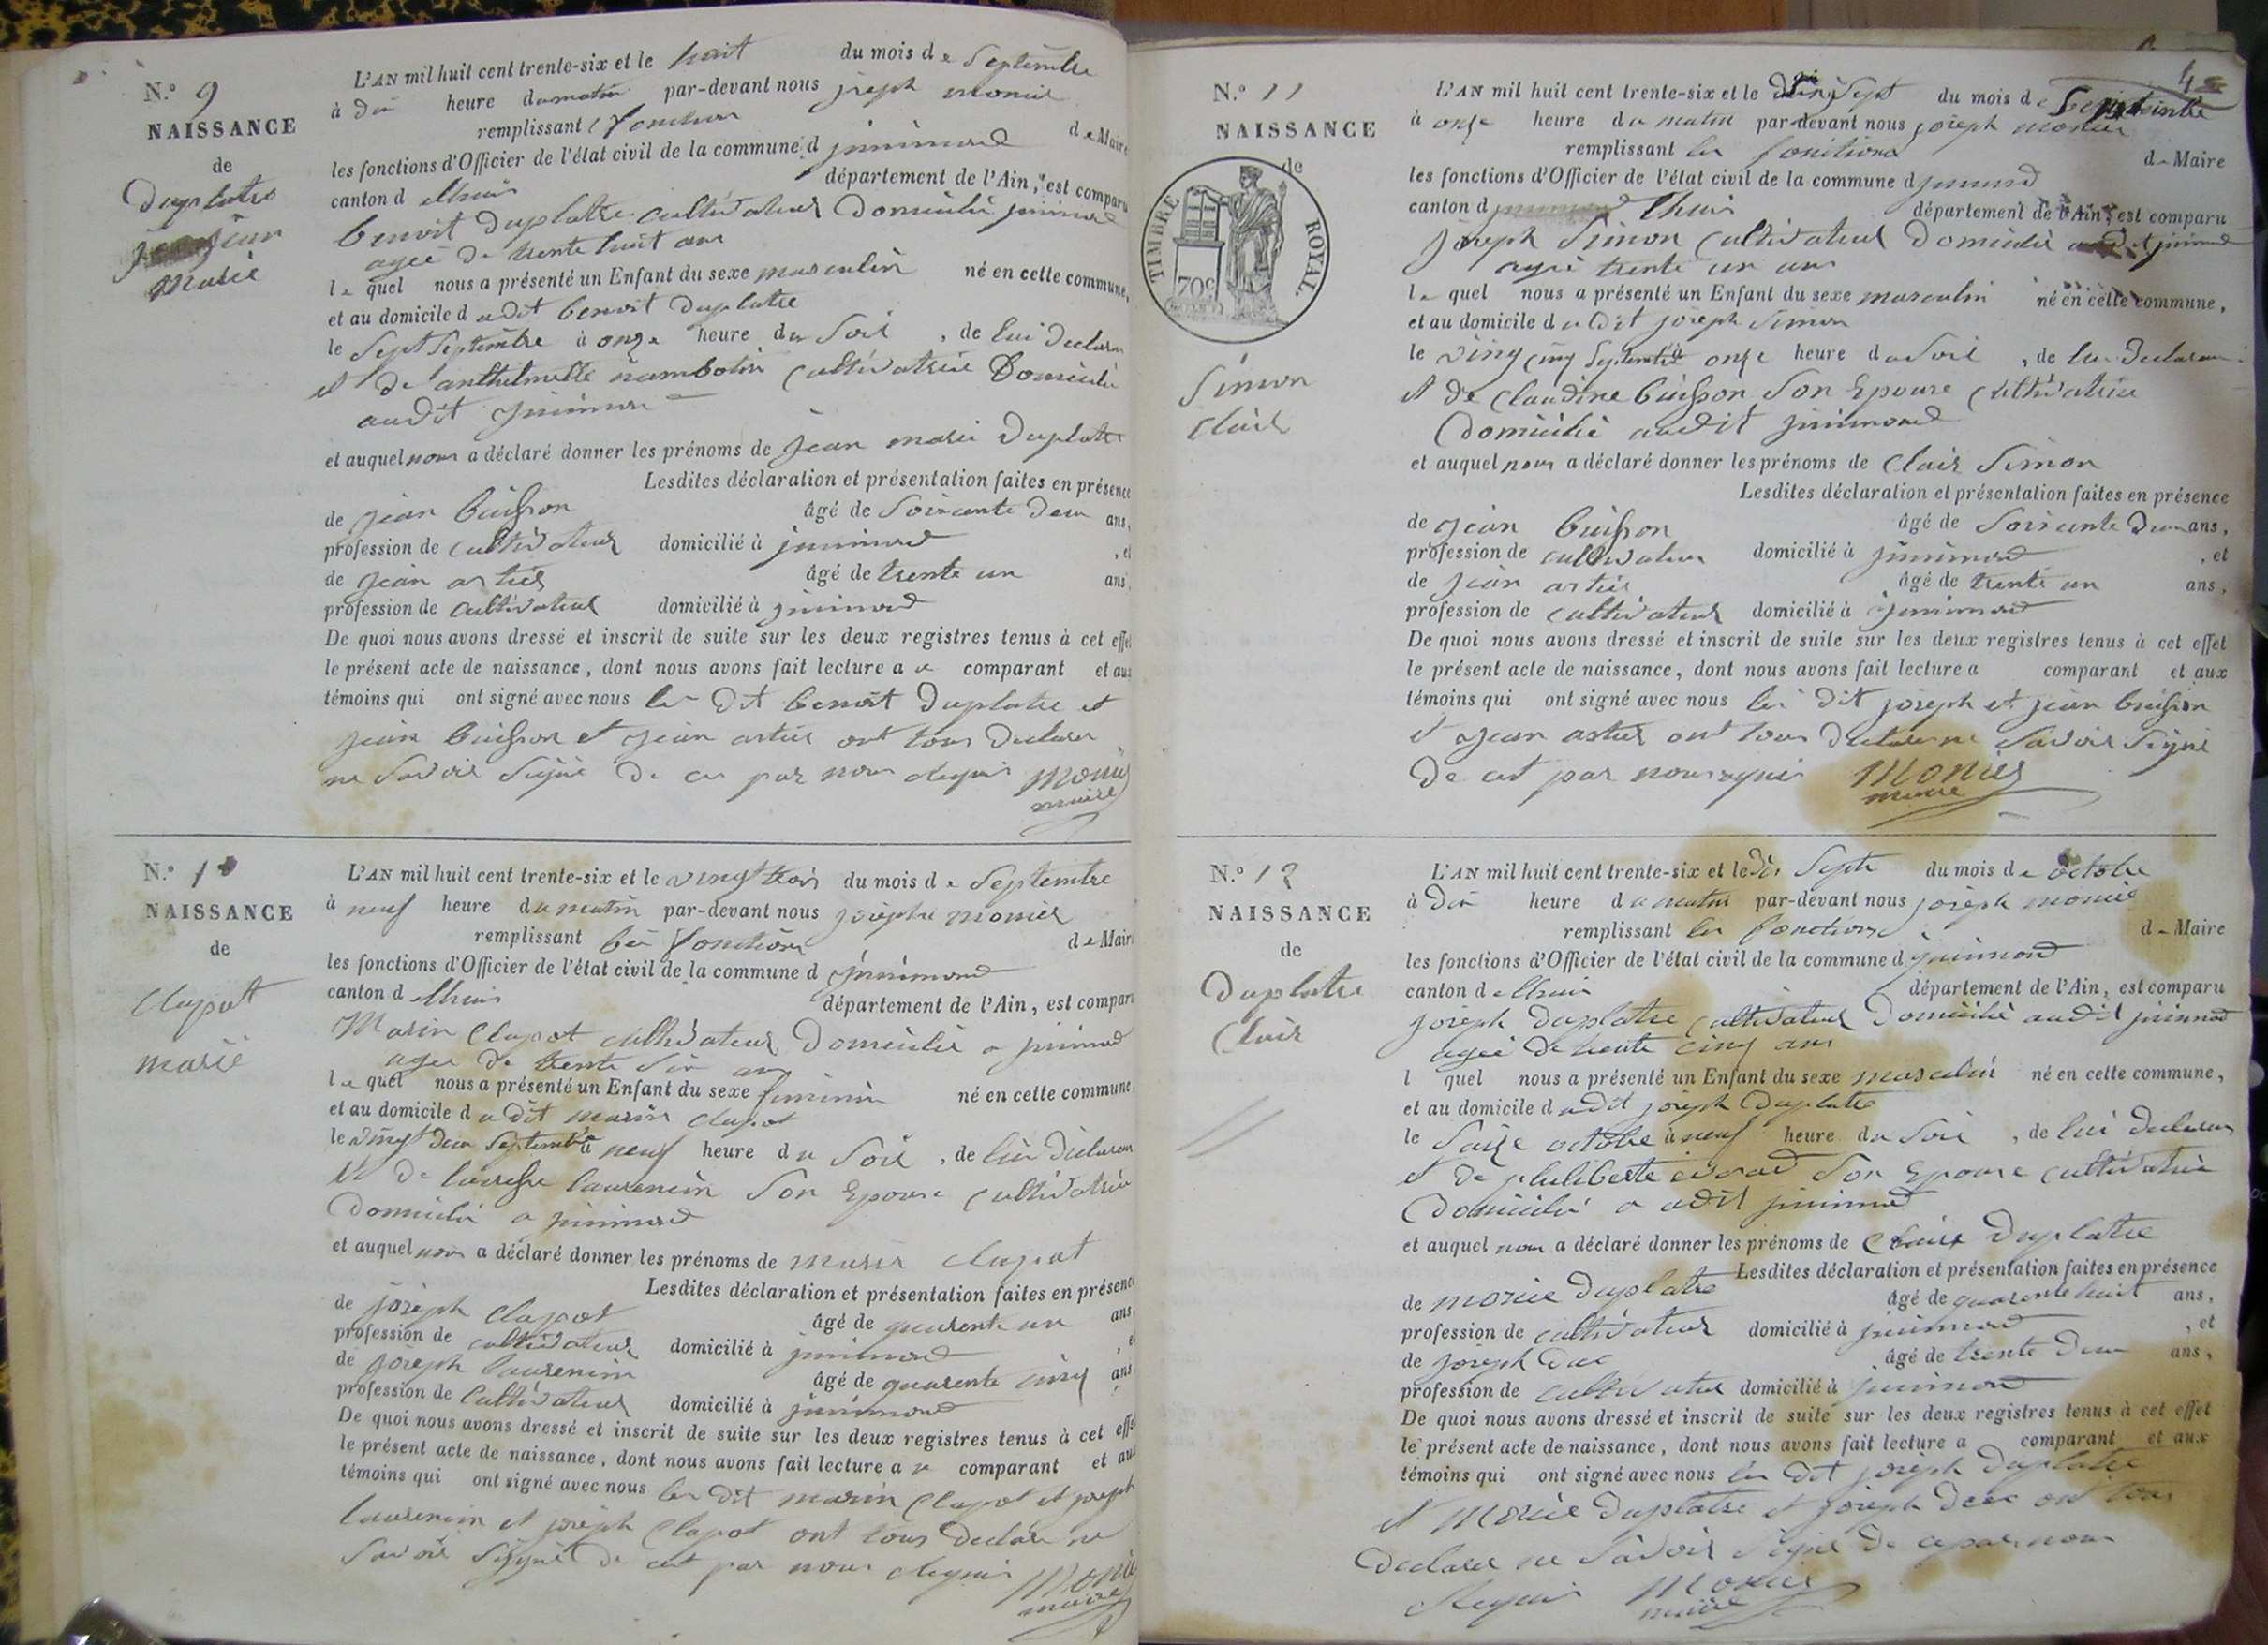 N.o 9
NAISSANCE
de
Duplatre
jean
marie
L'AN mil huit cent trente-six et le huit du mois de Septembre
à dix heure du matin par-devant nous joseph monier
remplissant fonction de Maire
les fonctions d'Officier de l'état civil de la commune d jinimond
canton d lhuis département de l'Ain, est comparu
benoit duplatre cultivateur domicilié jinimond
agee de trente huit ans
le quel nous a présenté un Enfant du sexe masculin né en cette commune,
et au domicile du dit benoit duplatre
le Sept Septembre à onze heure du Soir, de lui declaran
et de anthelmette nambotin cultivatrice Domicilié
audit jinimon
et auquel nous a déclaré donner les prénoms de jean marie Duplatre
Lesdites déclaration et présentation faites en présence
de jean buisson âgé de Soixante deux ans,
profession de cultivateur domicilié à jinimond, et
de jean artier âgé de trente un ans,
profession de cultivateur domicilié à jinimond
De quoi nous avons dressé et inscrit de suite sur les deux registres tenus à cet effet
le présent acte de naissance, dont nous avons fait lecture a u comparant et aux
témoins qui ont signé avec nous les dit benoit Duplatre et
jean buisson et jean artier ont tous declarer
ne Savoir Signé de ce par nous Requis Monier
maire
N.o 10
NAISSANCE
de
Clapot
marie
L'AN mil huit cent trente-six et le vingt trois du mois de Septembre
à neuf heure du matin par-devant nous joseph monier
remplissant les fonction de Maire
les fonctions d'Officier de l'état civil de la commune d jinimond
canton d lhuis département de l'Ain, est comparu
Marin Clapot cultivateur Domicilié a jinimond
agee de trente Six ans
le quel nous a présenté un Enfant du sexe feminin né en cette commune
et au domicile du dit marin clapot
le vingt deux Septembre à neuf heure du Soir, de lui declaran
et de laurencin Son Epouse cultivatrice
Domicilié a jinimond
et auquel nous a déclaré donner les prénoms de marie clapot
Lesdites déclaration et présentation faites en présence
de joseph clapot âgé de quarente un ans,
profession de cultivateur domicilié à jinimond, et
de joseph laurencin âgé de quarente cinq ans
profession de Cultivateur domicilié à jinimond
De quoi nous avons dressé et inscrit de suite sur les deux registres tenus à cet effet
le présent acte de naissance, dont nous avons fait lecture a u comparant et aux
témoins qui ont signé avec nous les dit marin Clapot et joseph
laurencin et joseph Clapot ont tous declare ne
Savoir Signé de cet par nous Requis Monier
maire
N.o 11
NAISSANCE
de
TIMBRE ROYAL.
70c
Simon
clair
L'AN mil huit cent trente-six et le Sept du mois de
à onze heure du matin par-devant nous joseph monier
remplissant les fonctions de Maire
les fonctions d'Officier de l'état civil de la commune d jinimond
canton d lhuis département de l'Ain, est comparu
joseph Simon cultivateur Domicilié audit jinimond
agee trente un ans
le quel nous a présenté un Enfant du sexe masculin né en cette commune,
et au domicile du dit joseph Simon
le ving cinq Septembre à onze heure du Soir, de lui Declaran
et de claudine buisson Son Epouse Cultivatrice
Domicilié audit jinimond
et auquel nous a déclaré donner les prénoms de clair Simon
Lesdites déclaration et présentation faites en présence
de jean buisson âgé de Soixante Deux ans,
profession de cultivateur domicilié à jinimond, et
de jean artier âgé de trente un ans,
profession de cultivateur domicilié à jinimond
De quoi nous avons dressé et inscrit de suite sur les deux registres tenus à cet effet
le présent acte de naissance, dont nous avons fait lecture a comparant et aux
témoins qui ont signé avec nous les dit joseph et jean buisson
et jean artier ont tous declare ne Savoir Signé
de cet par nous requis Monier
maire
N.o 12
NAISSANCE
de
Duplatre
Clair
L'AN mil huit cent trente-six et le dix Septe du mois de octobre
à dix heure du matin par-devant nous joseph monier
remplissant les fonctions de Maire
les fonctions d'Officier de l'état civil de la commune d jinimond
canton de lhuis département de l'Ain, est comparu
joseph duplatre cultivateur Domicilié audit jinimond
agee de trente cinq ans
l quel nous a présenté un Enfant du sexe masculin né en cette commune,
et au domicile du dit joseph Duplatre
le Saize octobre à neuf heure du Soir, de lui declaran
et de philiberte Son Epouse cultivatrice
Domicilié a udit jinimond
et auquel nous a déclaré donner les prénoms de Clair Duplatre
Lesdites déclaration et présentation faites en présence
de Duplatre âgé de quarente huit ans,
profession de cultivateur domicilié à jinimond, et
de joseph Duc âgé de trente Deux ans,
profession de cultivateur domicilié à jinimond
De quoi nous avons dressé et inscrit de suite sur les deux registres tenus à cet effet
le présent acte de naissance, dont nous avons fait lecture a comparant et aux
témoins qui ont signé avec nous les dit joseph Duplatre
et Duplatre et joseph Duc ont tous
declarer ne Savoir Signé de ce par nous
Requis Monier
maire